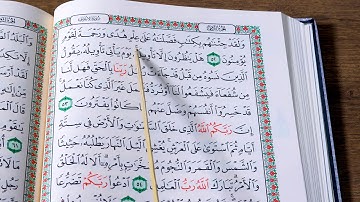 وَلَقَدْ جِئْنَٰهُم بِكِتَٰبٍ فَصَّلْنَٰهُ عَلَىٰ عِلْمٍ هُدًى وَرَحْمَةً لِّقَوْمٍ
يُؤْمِنُونَ ٥٢ هَلْ يَنظُرُونَ إِلَّا تَأْوِيلَهُۥ يَوْمَ يَأْتِى تَأْوِيلُهُۥ يَقُولُ
ٱلَّذِينَ نَسُوهُ مِن قَبْلُ قَدْ جَآءَتْ رُسُلُ رَبِّنَا بِٱلْحَقِّ فَهَل لَّنَا
مِن شُفَعَآءَ فَيَشْفَعُوا۟ لَنَآ أَوْ نُرَدُّ فَنَعْمَلَ غَيْرَ ٱلَّذِى كُنَّا نَعْمَلُ
قَدْ خَسِرُوٓا۟ أَنفُسَهُمْ وَضَلَّ عَنْهُم مَّا كَانُوا۟ يَفْتَرُونَ ٥٣
إِنَّ رَبَّكُمُ ٱللَّهُ ٱلَّذِى خَلَقَ ٱلسَّمَٰوَٰتِ وَٱلْأَرْضَ فِى سِتَّةِ
أَيَّامٍ ثُمَّ ٱسْتَوَىٰ عَلَى ٱلْعَرْشِ يُغْشِى ٱلَّيْلَ ٱلنَّهَارَ يَطْلُبُهُۥ حَثِيثًا
وَٱلشَّمْسَ وَٱلْقَمَرَ وَٱلنُّجُومَ مُسَخَّرَٰتٍۭ بِأَمْرِهِۦٓ أَلَا لَهُ ٱلْخَلْقُ
وَٱلْأَمْرُ تَبَارَكَ ٱللَّهُ رَبُّ ٱلْعَٰلَمِينَ ٥٤ ٱدْعُوا۟ رَبَّكُمْ تَضَرُّعًا